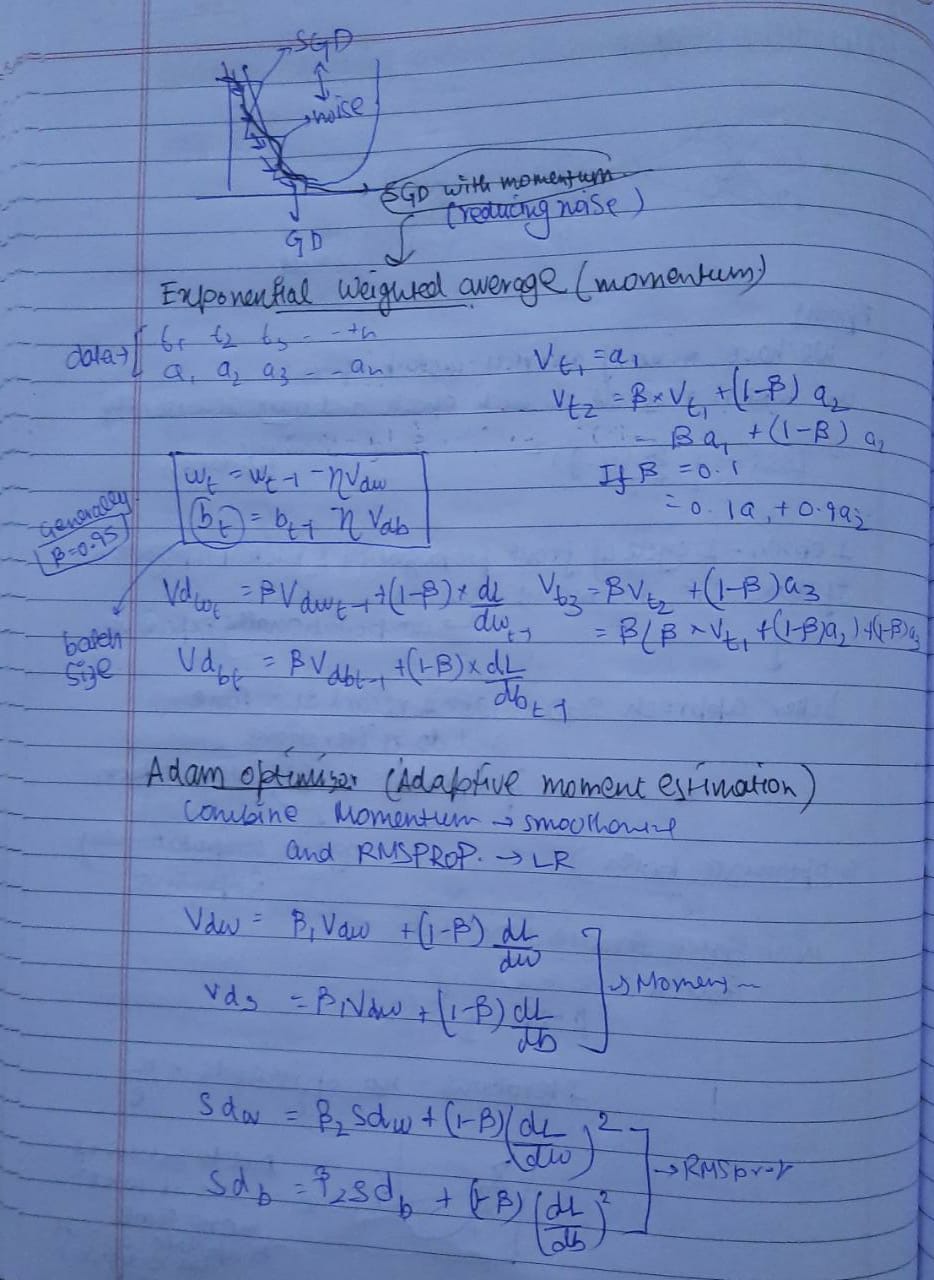 SGD
noise
SGD with momentum
(reducing noise)
GD
Exponential Weighted average (momentum)
data→ t₁ t₂ t₃ - - tn
a₁ a₂ a₃ - - an
Vt₁ = a₁
Vt₂ = β × Vt₁ + (1-β) a₂
= β a₁ + (1-β) a₂
If β = 0.1
= 0.1a₁ + 0.9a₂
wt = wt-1 - ηVdw
bt = bt-1 η Vdb
Generally
β=0.95
batch
size
Vdwt = βVdwt-1 + (1-β) × dL/dwt-1
Vt₃ = βVt₂ + (1-β)a₃
= β(β × Vt₁ + (1-β)a₂) + (1-β)a₃
Vdbt = βVdbt-1 + (1-β) × dL/dbt-1
Adam optimiser (Adaptive moment estimation)
Combine Momentum →
and RMSPROP. → LR
Vdw = β₁Vdw + (1-β) dL/dw
= β₁Vdw + (1-β) dL/db
→ Moment
Sdw = β₂ Sdw + (1-β)(dL/dw)²
Sdb = β₂Sdb + (1-β)(dL/db)²
→ RMSprop